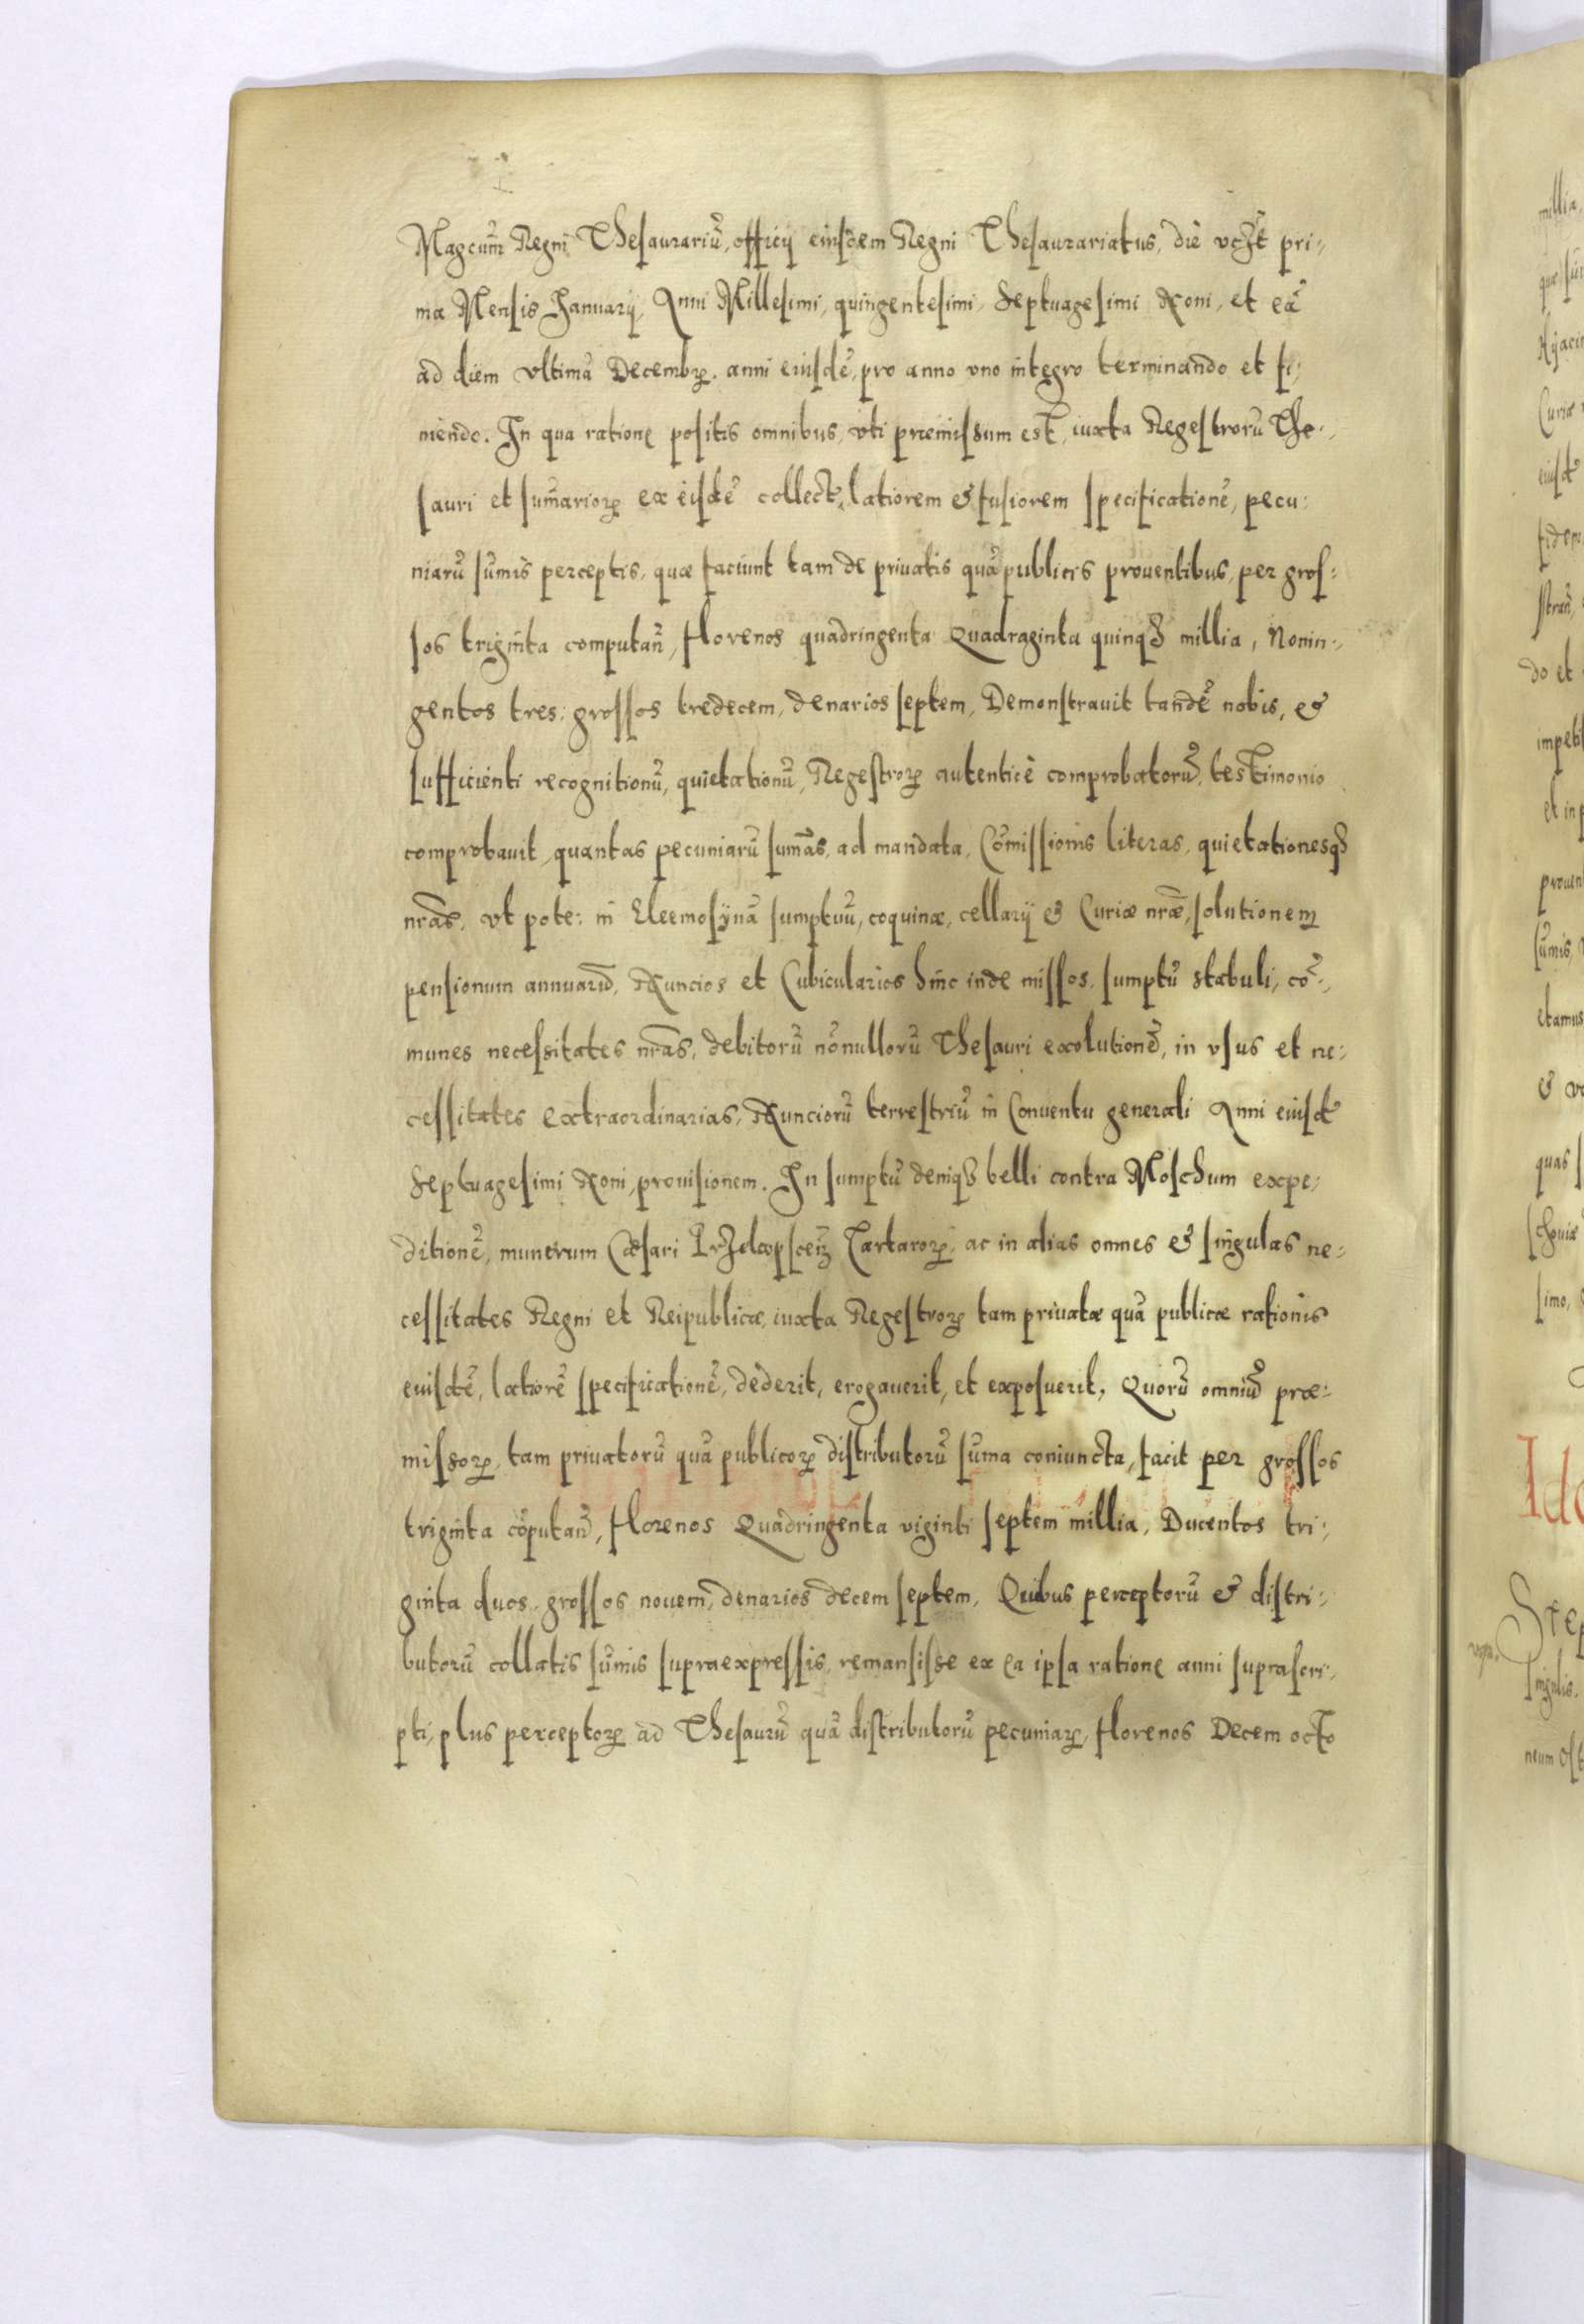 Magcum̃ Regni Thesaurariũ, officij eiusdem Regni Thesaurariatus, die vczt pri-
ma Mensis Januarij, Anni Millesimi, quingentesimi, Septuagesimi Noni, et eã
ad diem vltimã Decembꝝ. anni eiusdẽ, pro anno vno integro terminando et fi-
niendo. In qua ratione positis omnibus, vti præmissum est, iuxta Regestrorũ The-
sauri et sum̃arioꝝ ex eisdẽ collect. latiorem & fusiorem specificationẽ, pecu-
niarũ sum̃is perceptis, quæ faciunt tam de priuatis quã publicis prouentibus, per gros-
sos triginta computañ, florenos quadringenta Quadraginta quinqꝫ millia, Nonin-
gentos tres, grossos tredecem, denarios septem, Demonstrauit tandẽ nobis, &
sufficienti recognitionũ, quietationũ, Regestroꝝ autenticè comprobatorũ, testimonio
comprobauit, quantas pecuniarũ sum̃as, ad mandata, Com̃issionis literas, quietationesqꝫ
nr̃as, vt pote: in Eleemosÿnã sumptuũ, coquinæ, cellarij & Curiæ nr̃æ, solutionem
pensionum annuarũ, Nuncios et Cubicularios hinc inde missos, sumptũ stabuli, cõ-
munes necessitates nr̃as, debitorũ nõnullorũ Thesauri exolutionẽ, in vsus et ne-
cessitates extraordinarias, Nunciorũ terrestriũ in Conuentu generali Anni eiusdẽ
Septuagesimi Noni, prouisionem. In sumptũ deniqꝫ belli contra Moschum expe-
ditionẽ, munerum Cæsari Tartaroꝝ, ac in alias omnes & singulas ne-
cessitates Regni et Reipublicæ, iuxta Regestroꝝ tam priuatæ quã publicæ rationis
eiusdẽ, latiorẽ specificationẽ, dederit, erogauerit, et exposuerit, Quorũ omniũ præ-
missoꝝ, tam priuatorũ quã publicoꝝ distributorũ sum̃a coniuncta, facit per grossos
triginta cõputañ, florenos Quadringenta viginti septem millia, Ducentos tri-
ginta duos, grossos nouem, denarios decem septem, Quibus perceptorũ & distri-
butorũ collatis sum̃is supraexpressis, remansisse ex ea ipsa ratione anni suprascri-
pti, plus perceptoꝝ ad Thesaurũ quã distributorũ pecuniaꝝ, florenos Decem octo